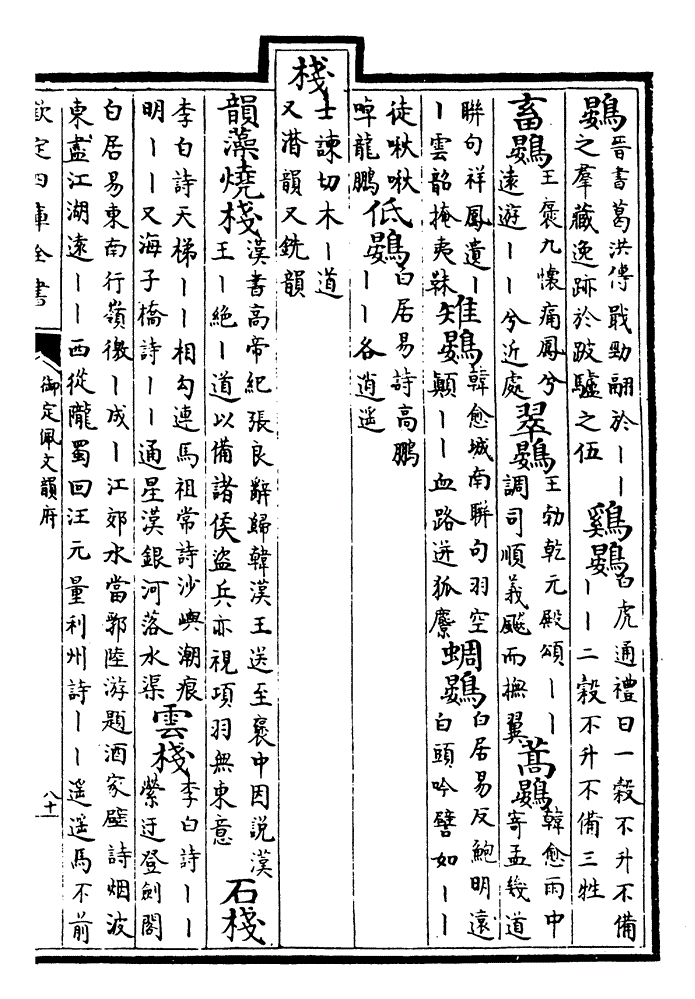 鷃晉書葛洪傳戢勁翮於丨丨之羣藏逸跡於跛驢之伍鷄鷃白虎通禮曰一穀不升不備丨丨二穀不升不備三牲
畜鷃王褒九懷痛鳳兮遠遊丨丨兮近處翠鷃王勃乾元殿頌丨丨調司順義颷而撫翼蒿鷃韓愈雨中寄孟幾道
聯句祥鳳遺丨丨雲韶掩夷靺雉鷃韓愈城南聯句羽空顛丨丨血路迸狐麖蜩鷃白居易反鮑明遠白頭吟譬如丨丨
徒啾啾啅龍鵬低鷃白居易詩高鵬丨丨各逍遥
棧士諫切木丨道又潸韻又銑韻
韻藻燒棧漢書高帝紀張良辭歸韓漢王送至褒中因説漢王丨絕丨道以備諸侯盜兵亦視項羽無東意石棧
李白詩天梯丨丨相勾連馬祖常詩沙嶼潮痕明丨丨又海子橋詩丨丨通星漢銀河落水渠雲棧李白詩丨丨縈迂登劍閣
白居易東南行嶺徼丨成丨江郊水當郭陸游題酒家壁詩烟波東盡江湖遠丨丨西從隴蜀回汪元量利州詩丨丨遥遥馬不前
欽定四庫全書 御定佩文韻府 八十一